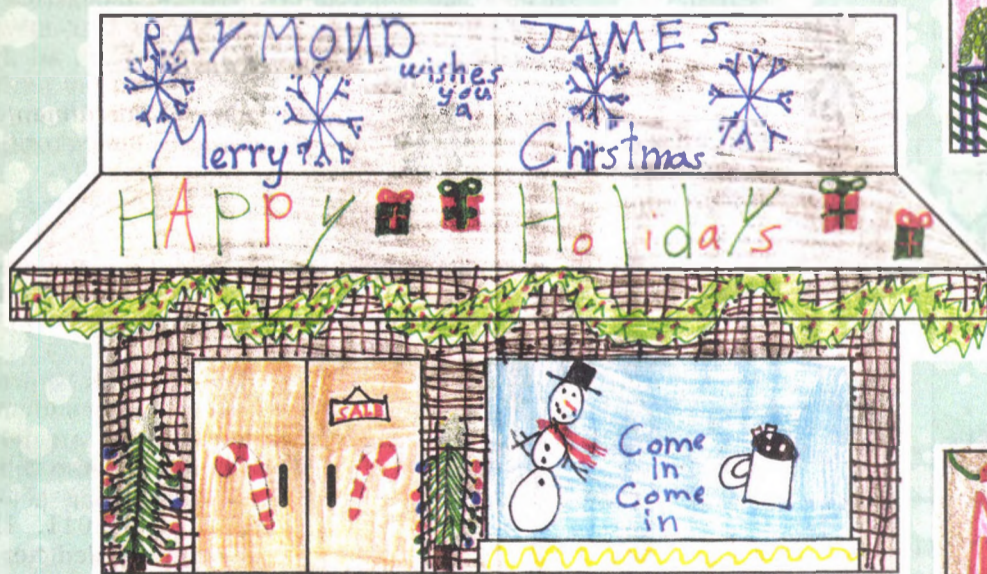 RAYMOND JAMES
wishes
you
a
Merry Chirstmas
HAPPy Holidays
SALE
Come
in
Come
in